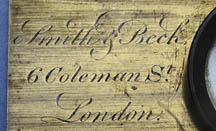 Smith & Beck,
6 Coleman St
London.